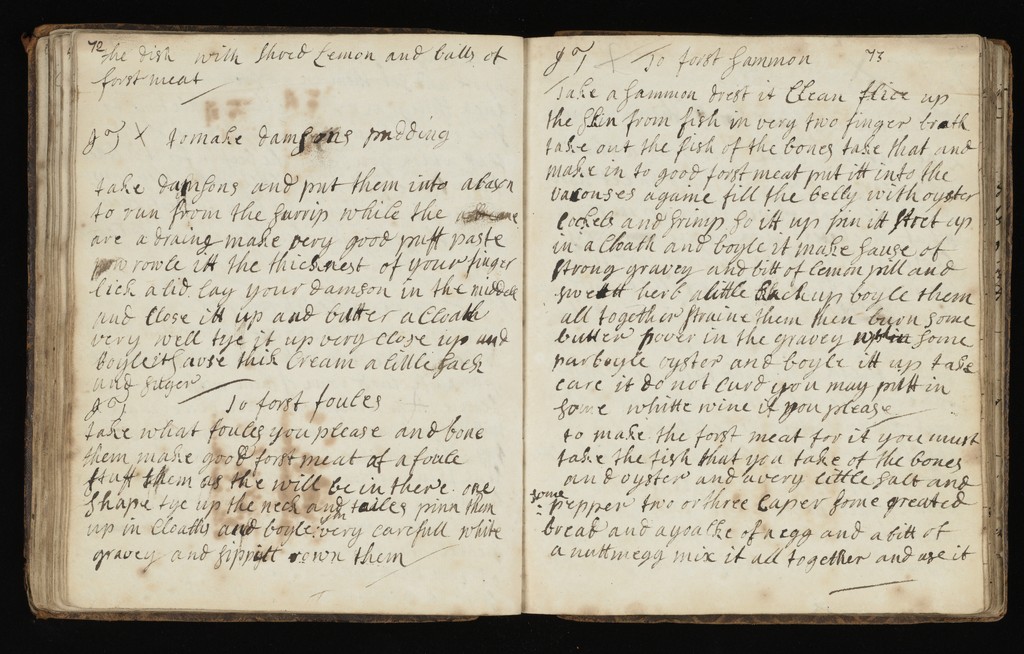 72
the dish with shred Lemon and balls of
forst meat
to make damsons pudding
take damsons and put them into a basn
to run from the surrip while the
are a draing make very good puft paste
rowle itt the thicknest of your finger
lick a lid. lay your damson in the middele
and close itt up and butter a Cloath
very well tye it up very close up and
boyle it sause thick Cream a little sack
and suger
To forst foules
take what foules you please and bone
them make good forst meat of a foule
stuff them as the will be in there one
shape tye up the neck and talles pinn them
up in Cloaths and boyle ym very carefull white
gravey and sippitt them
To forst sammon 73
Take a sammon drest it Clean slice up
the skin from fish in very two finger breath
take out the fish of the bones take that and
make in to good forst meat put itt into the
againe fill the belly with oyster
Cockels and srimp so itt up pin itt up
in a Cloath and boyle it make sause of
strong gravey and bitt of Lemon pill and
sweett herb a little up boyle them
all together straine them then some
butter power in the gravey some
parboyle oyster and boyle itt up take
care it do not Curd you may putt in
some whitte wine if you please
to make the forst meat for it you must
take the fish that you take of the bones
and oyster and a very little salt and
some pepper two or three Caper some greated
bread and a yoalke of a egg and a bitt of
a nuttmegg mix it all together and use it